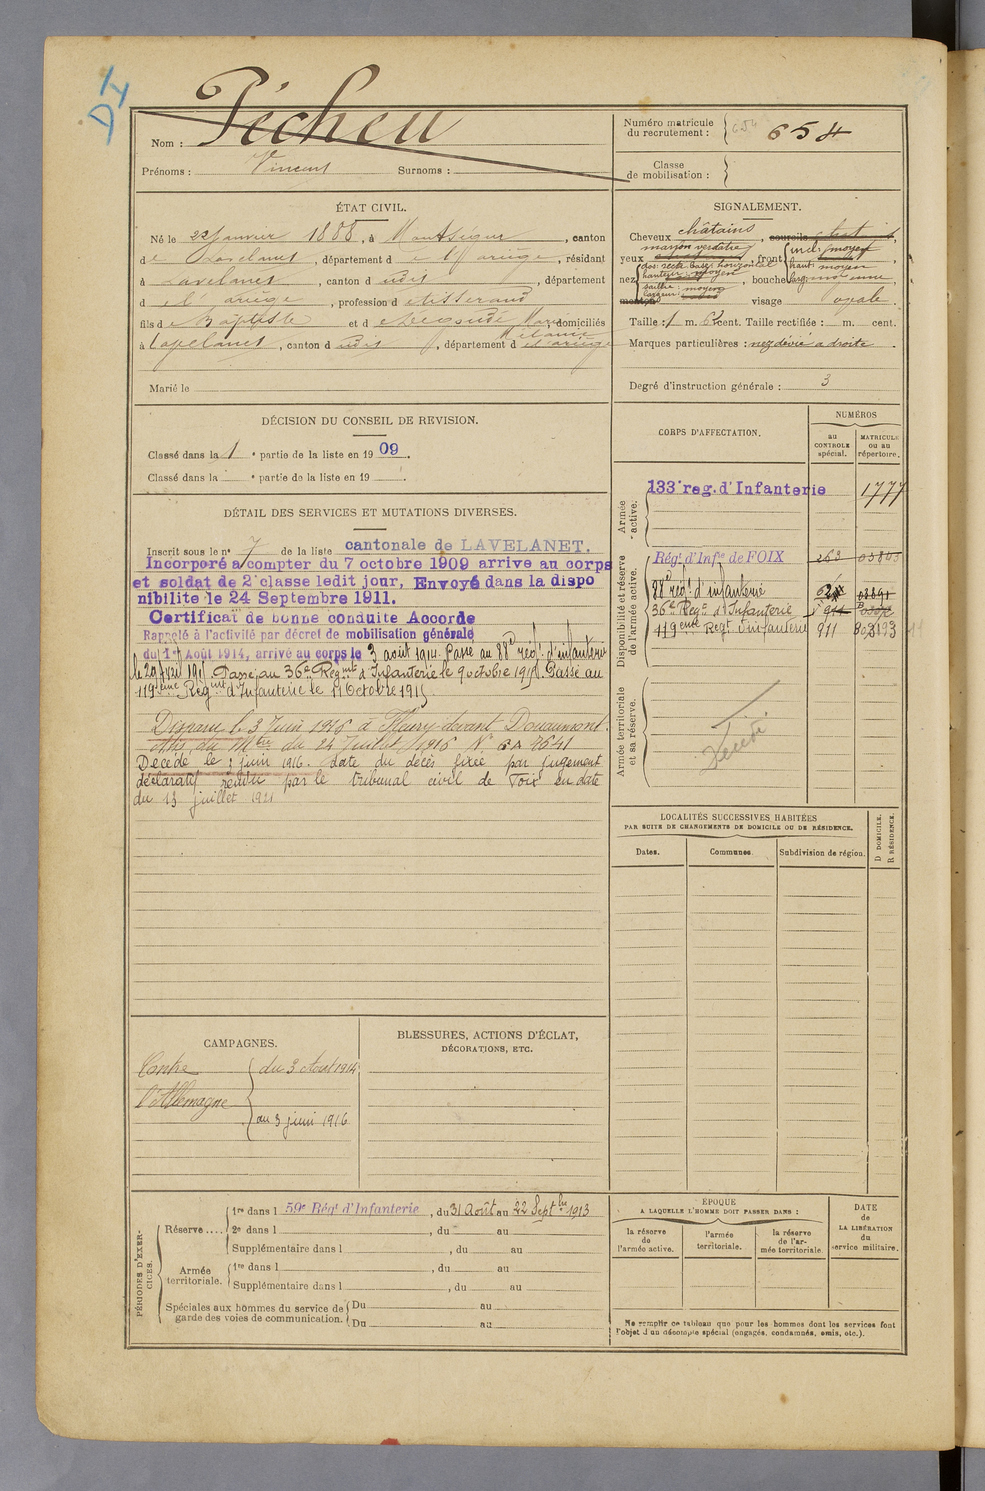 DI
Nom : Pécheu
Prénoms : Vincent Surnoms :
Numéro matricule du recrutement : 654
Classe de mobilisation :
ÉTAT CIVIL.
Né le 22 Janvier 1888, à Montségur, canton
de Lavelanet, département de l'Ariège, résidant
à Lavelanet, canton d udit, département
d e l'Ariège, profession de tisserand
fils de Baptiste et de Marie, domiciliés
Mélanie
à Lavelanet, canton d udit, département de l'ariège
Marié le
SIGNALEMENT.
Cheveux châtains, sourcils chat
yeux marron verdâtre, front incl: moyen
haut: moyen
nez dos: recte base: horizontal
hauteur: moyen, bouche larg: moyenne,
saillie: moyen
largeur: moyen
menton visage ovale
Taille : 1 m. 62 cent. Taille rectifiée : m. cent.
Marques particulières : nez dévié à droite.
Degré d'instruction générale : 3
DÉCISION DU CONSEIL DE REVISION.
Classé dans la 1 e partie de la liste en 1909.
Classé dans la e partie de la liste en 19 .
DÉTAIL DES SERVICES ET MUTATIONS DIVERSES.
Inscrit sous le n° 7 de la liste cantonale de LAVELANET.
Incorporé à compter du 7 octobre 1909 arrive au corps
et soldat de 2e classe ledit jour, Envoyé dans la dispo
nibilite le 24 Septembre 1911.
Certificat de bonne conduite Accorde
Rappelé à l'activité par décret de mobilisation générale
du 1er Août 1914, arrivé au corps le 3 août 1914. Passé au 88e rég.t d'infanterie
le 29 avril 1915. Passé au 36e Régmt d'Infanterie le 9 octobre 1915. Passé au
119ème Régmt d'Infanterie le 11 Octobre 1915.
Disparu le 3 Juin 1916 à Fleury-devant Douaumont.
Avis du Mtre du 24 Juillet 1916 N° 7641
Décédé le 3 juin 1916. date du décès fixée par jugement
déclaratif rendu par le tribunal civil de Foix en date
du 13 juillet 1921
CORPS D'AFFECTATION.
NUMÉROS
au CONTROLE spécial.
MATRICULE ou au répertoire.
Armée active.
133e reg. d'Infanterie 1777
Disponibilité et réserve de l'armée active.
Régt d'Infie de FOIX 263
88e rég.t d'infanterie
36e Regt d'Infanterie
119eme Regt d'infanterie 911
Armée territoriale et sa réserve.
Décédé
LOCALITÉS SUCCESSIVES HABITÉES
PAR SUITE DE CHANGEMENTS DE DOMICILE OU DE RÉSIDENCE.
Dates. Communes. Subdivision de région.
D DOMICILE.
R RÉSIDENCE.
CAMPAGNES.
Contre du 3 Aout 1914
l'Allemagne
au 3 juin 1916
BLESSURES, ACTIONS D'ÉCLAT,
DÉCORATIONS, ETC.
PÉRIODES D'EXERCICES.
Réserve.... 1re dans l 59e Régt d'Infanterie, du 31 Août au 22 Septbre 1913
2e dans l , du au
Supplémentaire dans l , du au
Armée territoriale. 1re dans l , du au
Supplémentaire dans l , du au
Spéciales aux hommes du service de Du au
garde des voies de communication. Du au
ÉPOQUE
A LAQUELLE L'HOMME DOIT PASSER DANS :
la réserve de l'armée active.
l'armée territoriale.
la réserve de l'armée territoriale.
DATE
de
LA LIBÉRATION
du
service militaire.
Ne remplir ce tableau que pour les hommes dont les services font
l'objet d'un décompte spécial (engagés, condamnés, omis, etc.).